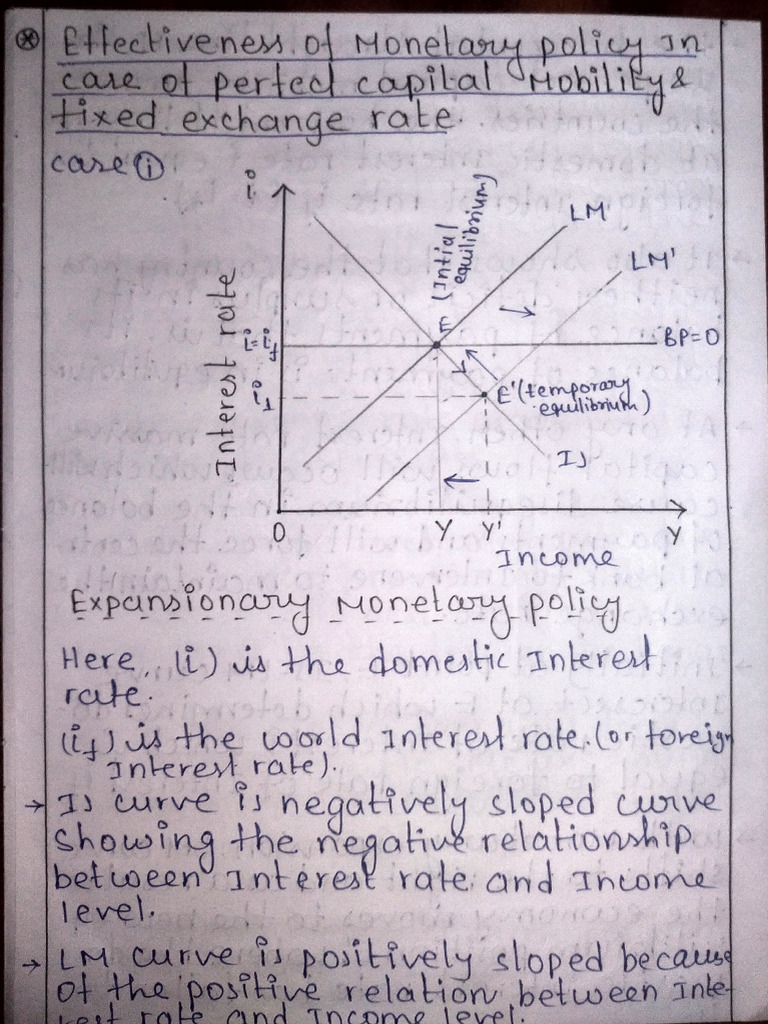 Effectiveness of Monetary policy in
case of perfect capital Mobility &
fixed exchange rate.
case (i)
i
Interest rate
E (Intial
equilibrium)
LM
LM'
i=if
BP=0
i1
E' (temporary
equilibrium)
IS
O
Y
Y'
Y
Income
Expansionary Monetary policy
Here, (i) is the domestic Interest
rate.
(if) is the world Interest rate. (or foreign
Interest rate).
→ IS curve is negatively sloped curve
showing the negative relationship
between Interest rate and Income
level.
→ LM curve is positively sloped because
of the positive relation between Inte-
rest rate and Income level.